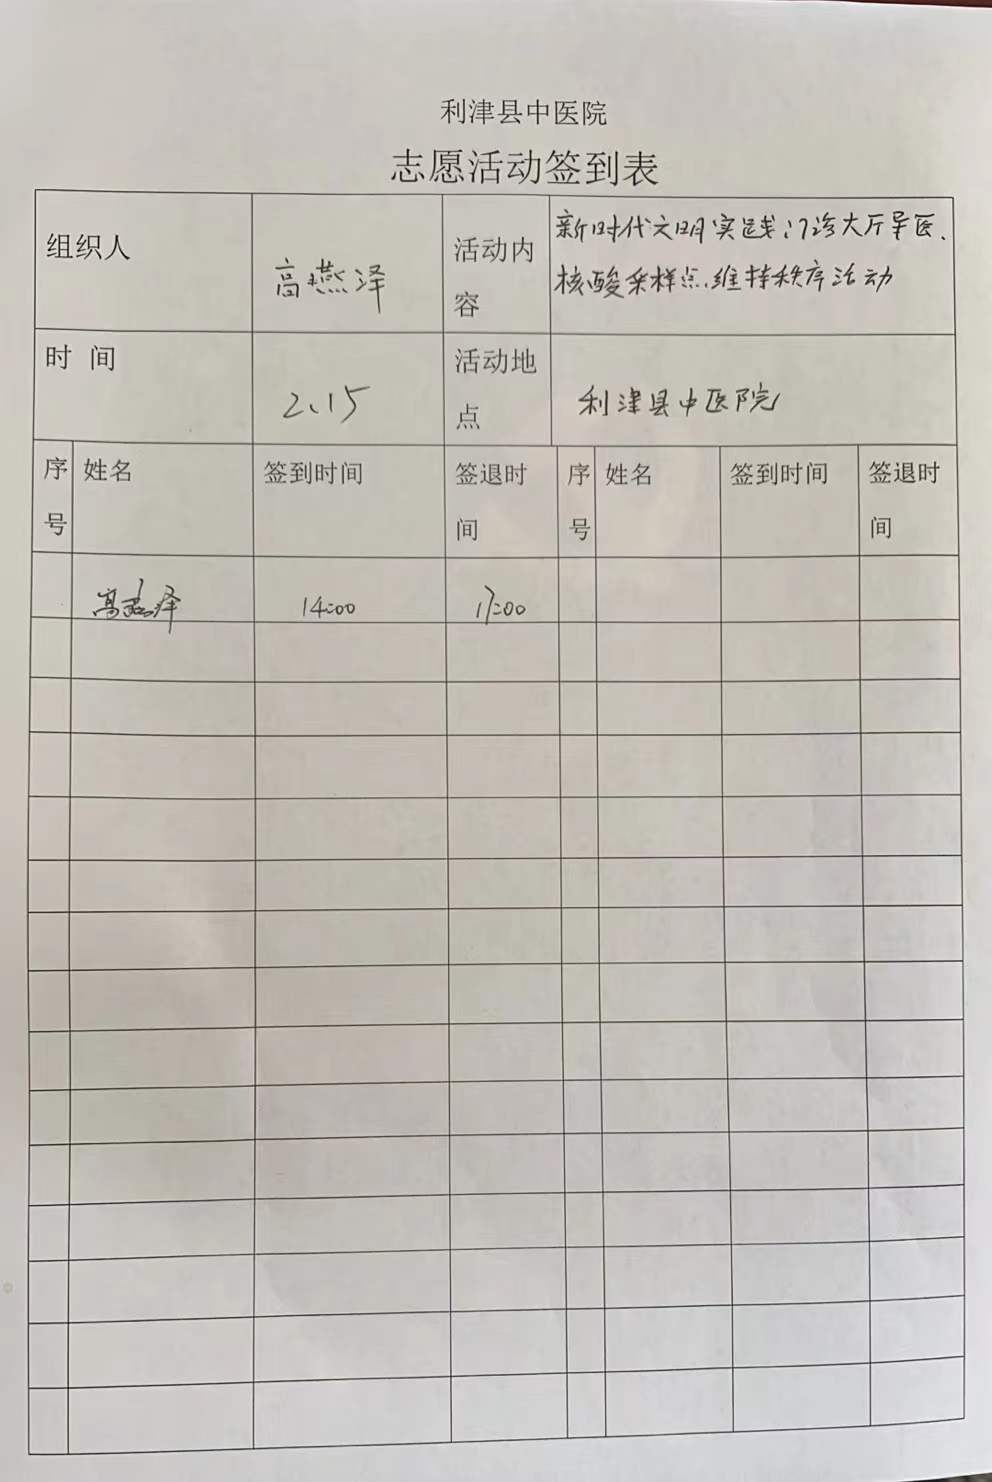 利津县中医院
志愿活动签到表
组织人 高燕泽 活动内容 新时代文明实践门诊大厅导医、
核酸采样点、维持秩序活动
时 间 2、15 活动地点 利津县中医院
序号 姓名 签到时间 签退时间 序号 姓名 签到时间 签退时间
高燕泽 14:00 17:00